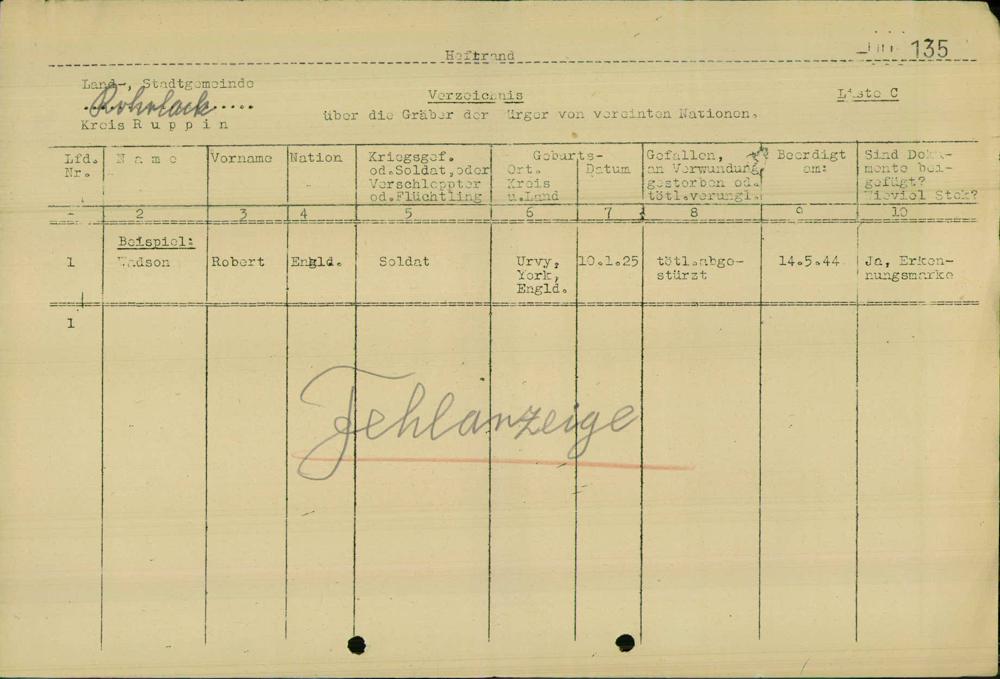 Heftrand
135
Land-, Stadtgemeinde
Rohrlack
Kreis Ruppin
Verzeichnis
Liste C
über die Gräber der Bürger von vereinten Nationen.
Lfd. Nr.
Name
Vorname
Nation
Kriegsgef. od.Soldat,oder Verschleppter od.Flüchtling
Geburts-
Ort. Kreis u.Land
Datum
Gefallen, an Verwundung gestorben od. tötl.verungl.
Beerdigt am:
Sind Doku- mente bei- gefügt? Wieviel Stck?
2 3 4 5 6 7 8 9 10
Beispiel:
1 Robert Engld. Soldat Urvy, 10.1.25 tötl.abge- 14.5.44 Ja, Erken-
York, stürzt nungsmarke
Engld.
1
Fehlanzeige